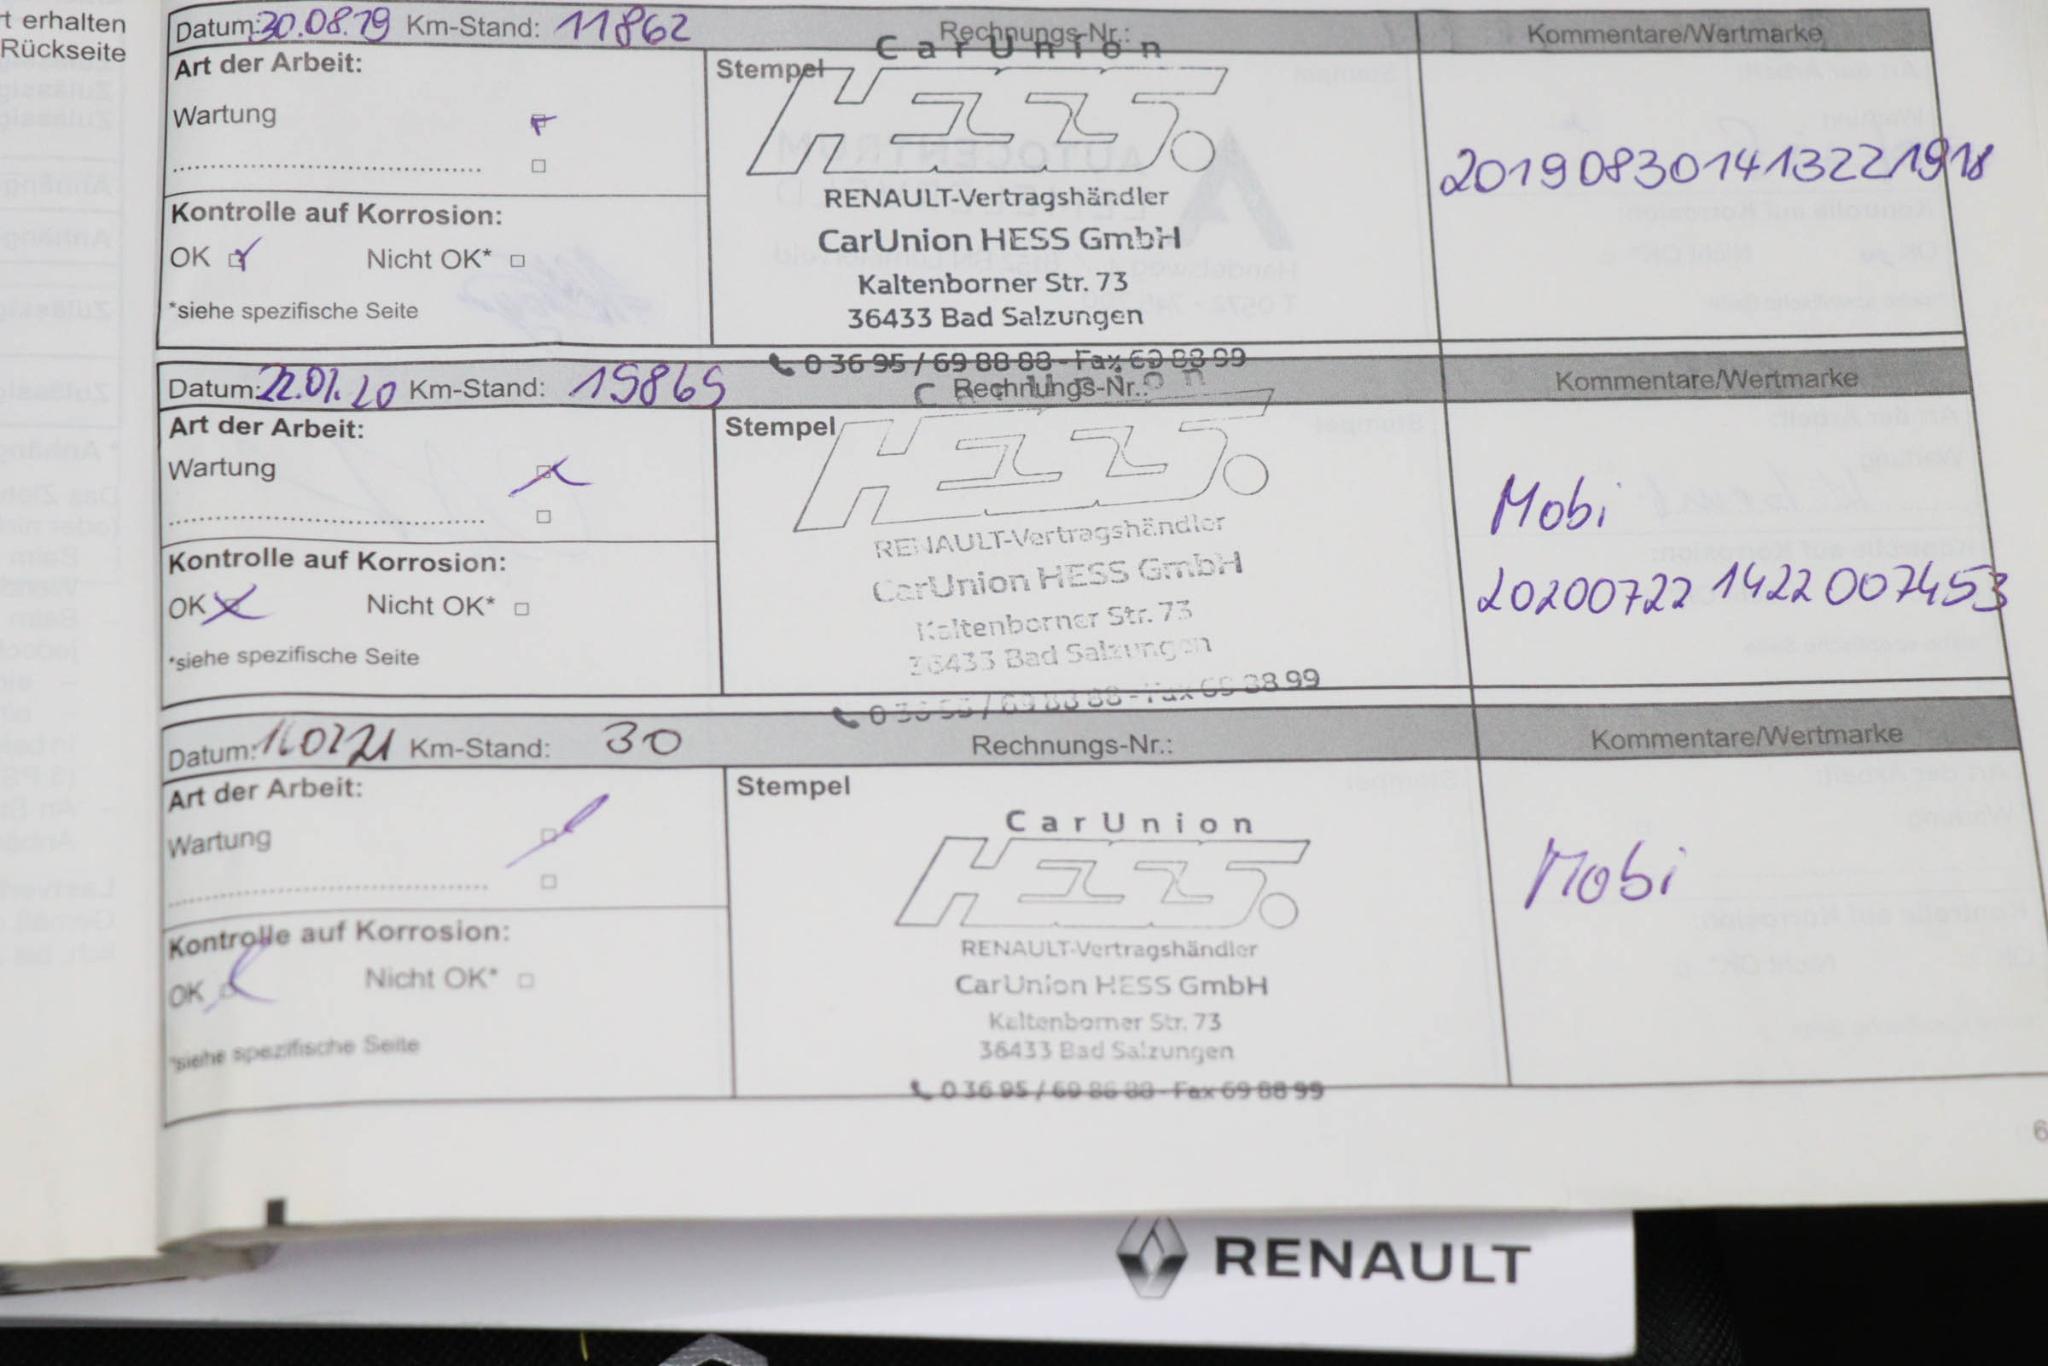 t erhalten
Rückseite
Datum: 30.08.19 Km-Stand: 11862 Rechnungs-Nr.: Kommentare/Wertmarke
Art der Arbeit:
Wartung
Kontrolle auf Korrosion:
OK Nicht OK*
*siehe spezifische Seite
Stempel
CarUnion
HESS.
RENAULT-Vertragshändler
CarUnion HESS GmbH
Kaltenborner Str. 73
36433 Bad Salzungen
0 36 95 / 69 88 88 - Fax 69 88 99
201908301413221918
Datum: 22.01.20 Km-Stand: 19865 Rechnungs-Nr.: Kommentare/Wertmarke
Art der Arbeit:
Wartung
Kontrolle auf Korrosion:
OK Nicht OK*
*siehe spezifische Seite
Stempel
CarUnion
HESS.
RENAULT-Vertragshändler
CarUnion HESS GmbH
Kaltenborner Str. 73
36433 Bad Salzungen
0 36 95 / 69 88 88 - Fax 69 88 99
Mobi
20200722 1422007453
Datum: Km-Stand: 30 Rechnungs-Nr.: Kommentare/Wertmarke
Art der Arbeit:
Wartung
Kontrolle auf Korrosion:
OK Nicht OK*
*siehe spezifische Seite
Stempel
CarUnion
HESS.
RENAULT-Vertragshändler
CarUnion HESS GmbH
Kaltenborner Str. 73
36433 Bad Salzungen
0 36 95 / 69 88 88 - Fax 69 88 99
Mobi
6
RENAULT